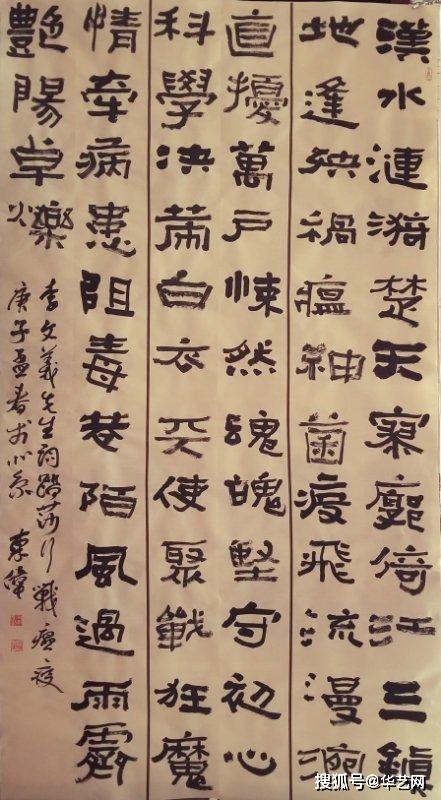 漢水漣漪楚天寥廓倚江三鎮
地逢殃禍瘟神菌疫飛流漫
直擾萬戶悚然魂魄堅守初心
科學決策白衣天使聚戰狂魔
情牽病患阻毒巷陌風過雨霽
艷陽卓爍
李文義先生詞踏莎行戰瘟疫
庚子孟春於北京
搜狐号@华艺网